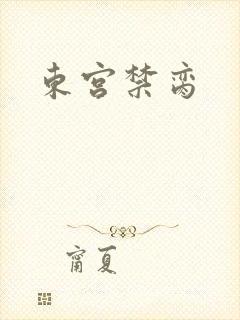 東宫禁脔
甯夏